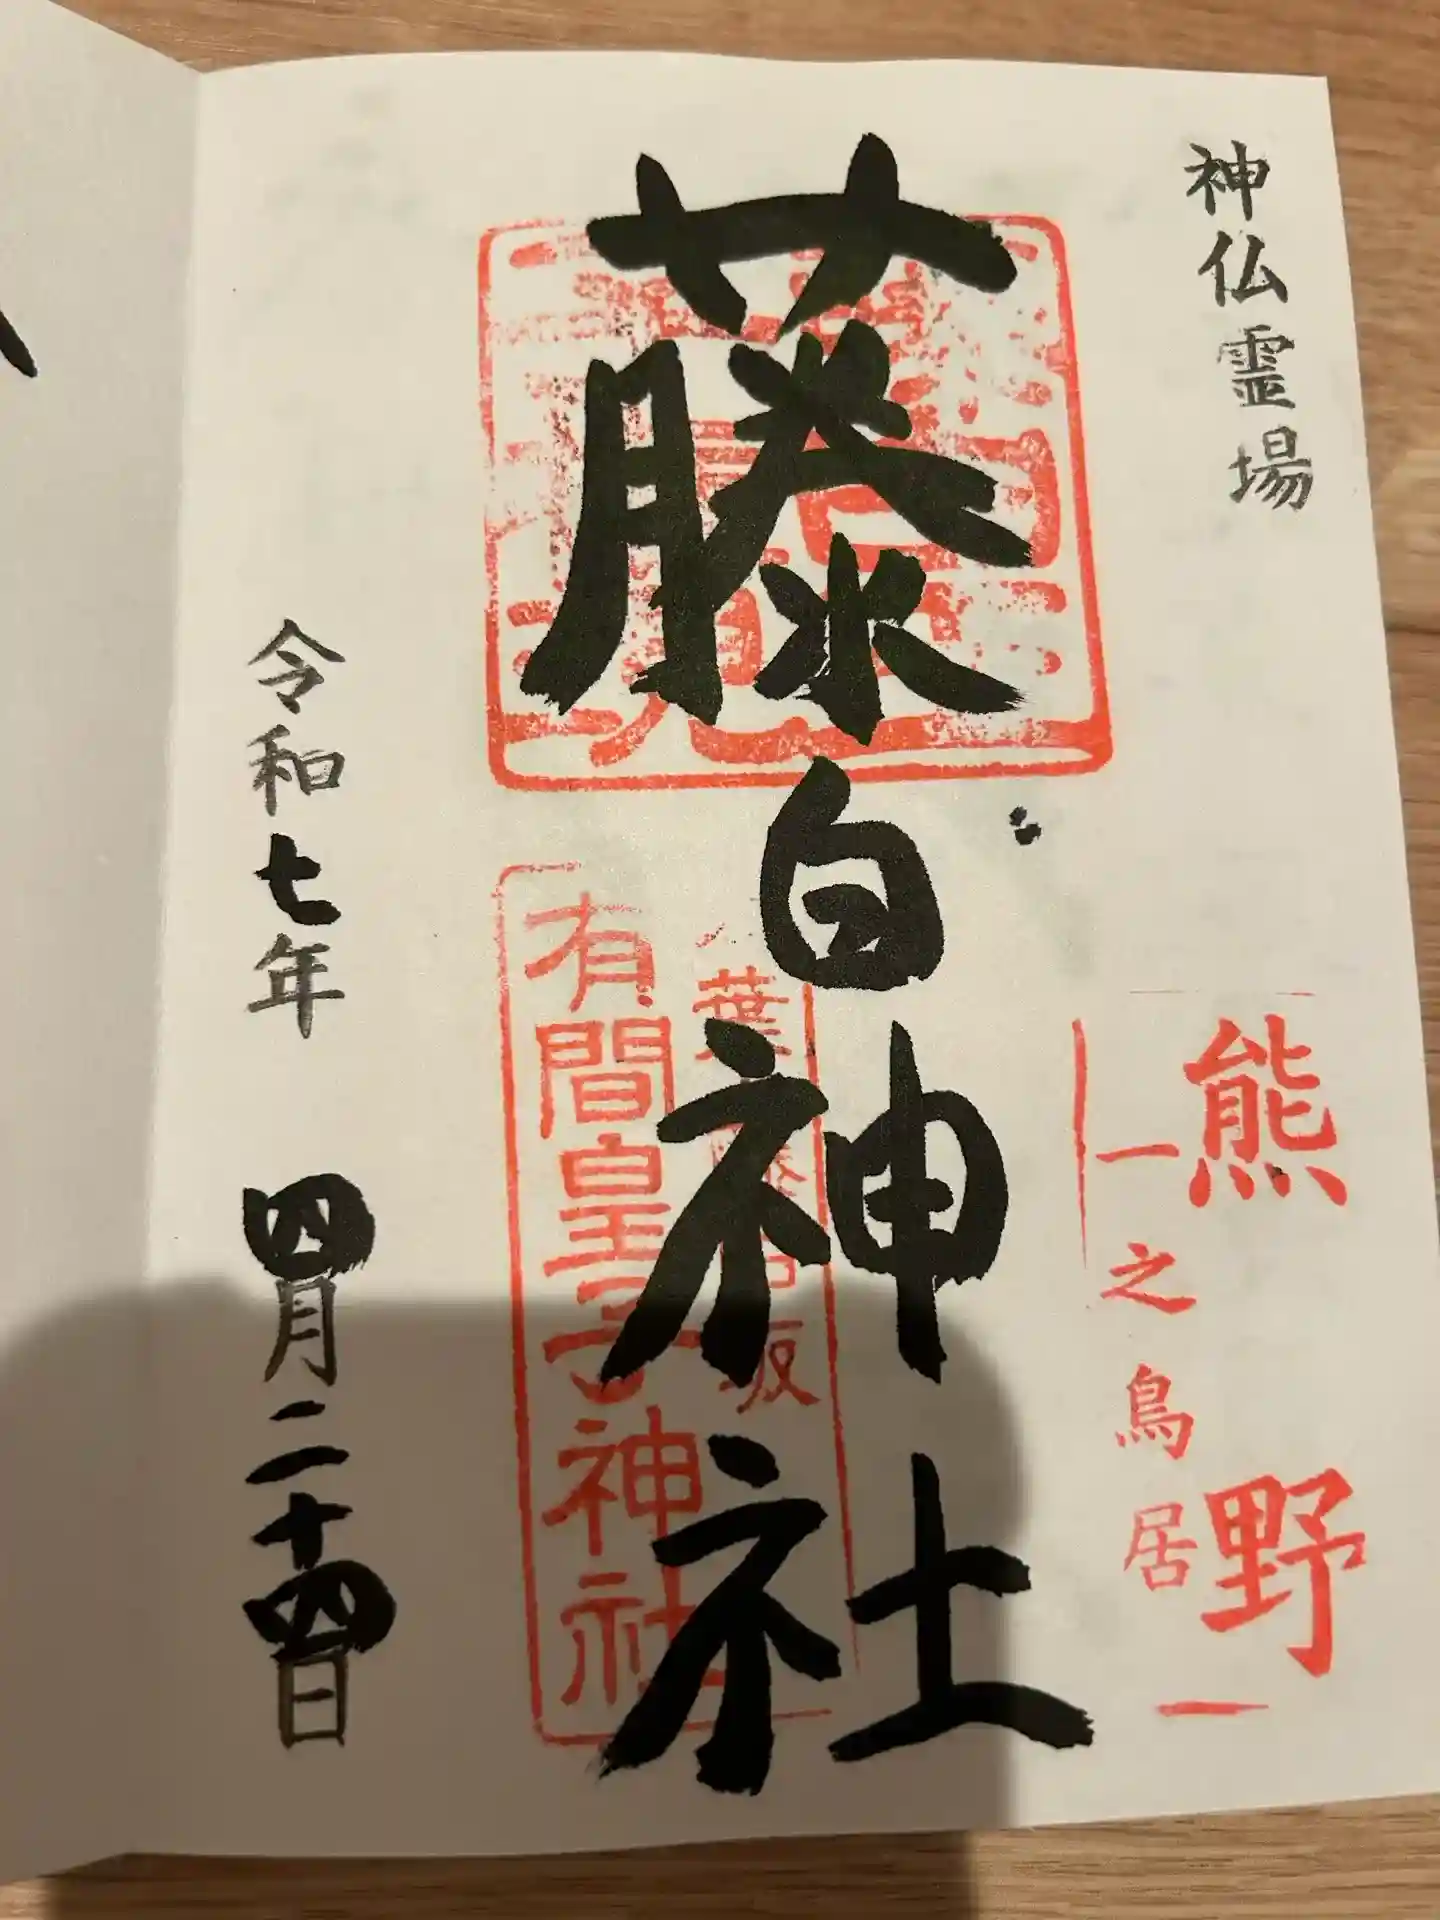 神仏霊場
熊野
一之鳥居
藤白神社
有間皇子神社
令和七年 四月二十四日